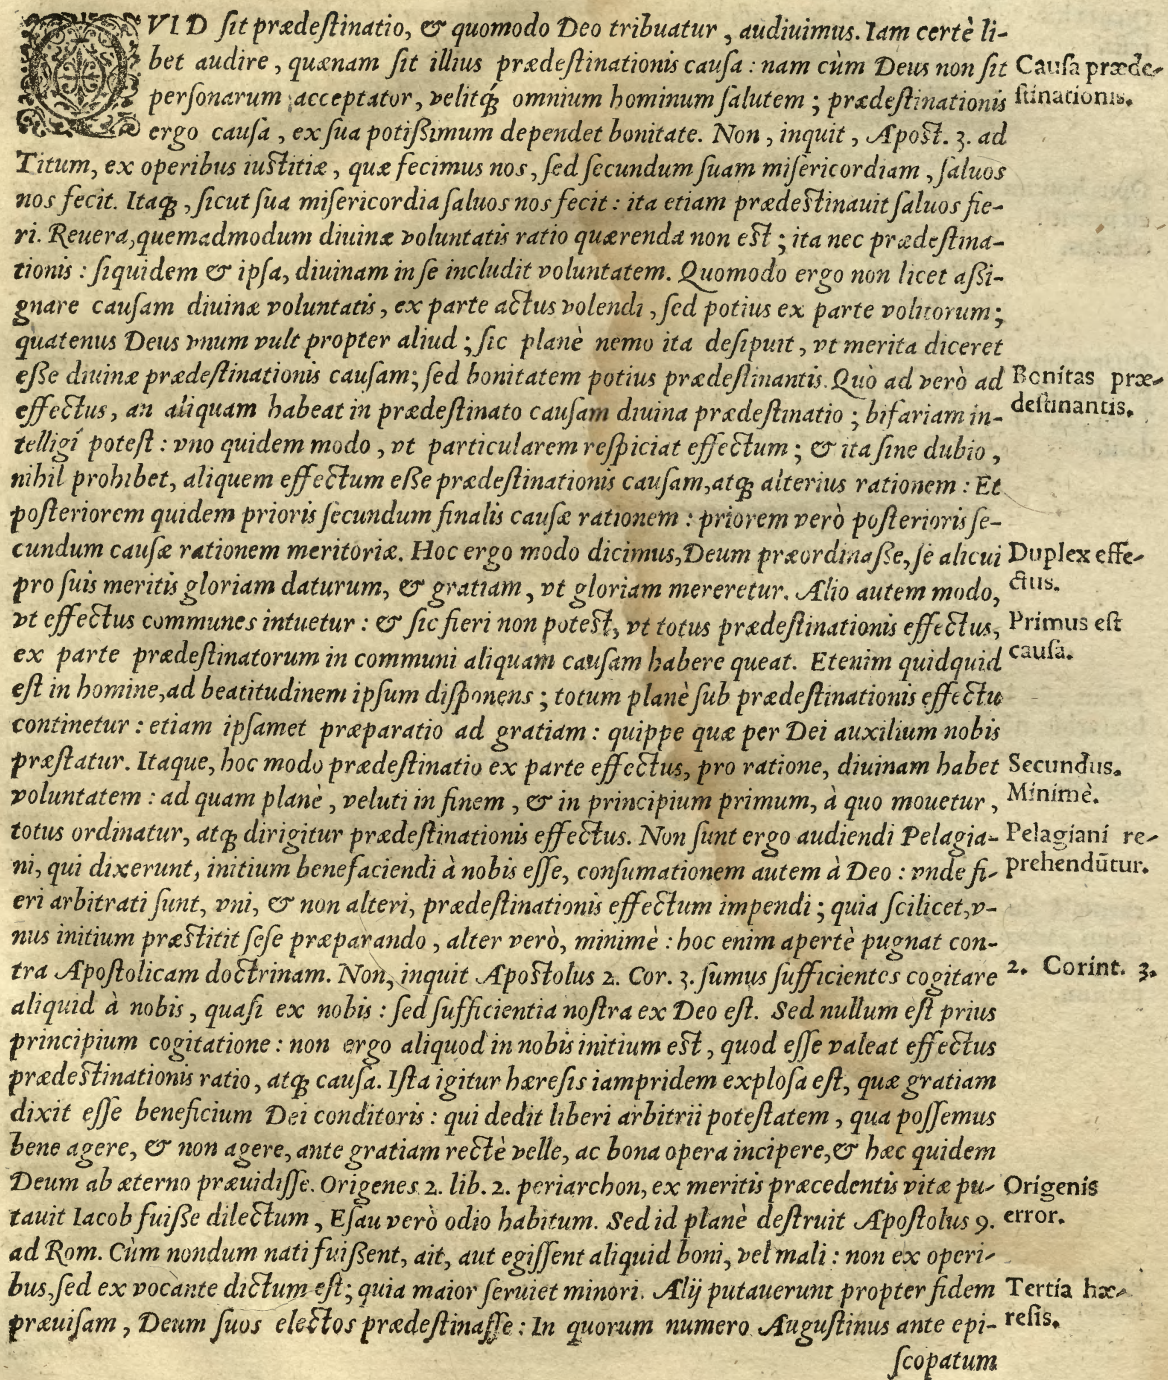 QVID sit prædestinatio, & quomodo Deo tribuatur, audiuimus. Iam certè li-
bet audire, quænam sit illius prædestinationis causa: nam cùm Deus non sit
Causa præde-
personarum acceptator, velitq́; omnium hominum salutem; prædestinationis
stinationis.
ergo causa, ex sua potißimum dependet bonitate. Non, inquit, Apost. 3. ad
Titum, ex operibus iustitiæ, quæ fecimus nos, sed secundum suam misericordiam, saluos
nos fecit. Itaq;, sicut sua misericordia saluos nos fecit: ita etiam prædestinauit saluos fie-
ri. Reuera, quemadmodum diuinæ voluntatis ratio quærenda non est; ita nec prædestina-
tionis: siquidem & ipsa, diuinam in se includit voluntatem. Quomodo ergo non licet aßi-
gnare causam diuinæ voluntatis, ex parte actus volendi, sed potius ex parte volitorum;
quatenus Deus vnum vult propter aliud; sic planè nemo ita desipuit, vt merita diceret
eße diuinæ prædestinationis causam; sed bonitatem potius prædestinantis. Quò ad verò ad
Bonitas præ-
effectus, an aliquam habeat in prædestinato causam diuina prædestinatio; bifariam in-
destinantis.
telligi potest: vno quidem modo, vt particularem respiciat effectum; & ita sine dubio,
nihil prohibet, aliquem effectum eße prædestinationis causam, atq; alterius rationem: Et
posteriorem quidem prioris secundum finalis causæ rationem: priorem verò posterioris se-
cundum causæ rationem meritoriæ. Hoc ergo modo dicimus, Deum præordinaße, se alicui
Duplex effe-
pro suis meritis gloriam daturum, & gratiam, vt gloriam mereretur. Alio autem modo,
ctus.
vt effectus communes intuetur: & sic fieri non potest, vt totus prædestinationis effectus,
Primus est
ex parte prædestinatorum in communi aliquam causam habere queat. Etenim quidquid
causa.
est in homine, ad beatitudinem ipsum disponens; totum planè sub prædestinationis effectu
continetur: etiam ipsamet præparatio ad gratiam: quippe quæ per Dei auxilium nobis
præstatur. Itaque, hoc modo prædestinatio ex parte effectus, pro ratione, diuinam habet
Secundus.
voluntatem: ad quam planè, veluti in finem, & in principium primum, à quo mouetur,
Minimè.
totus ordinatur, atq; dirigitur prædestinationis effectus. Non sunt ergo audiendi Pelagia-
Pelagiani re-
ni, qui dixerunt, initium benefaciendi à nobis esse, consumationem autem à Deo: vnde fi-
prehendūtur.
eri arbitrati sunt, vni, & non alteri, prædestinationis effectum impendi; quia scilicet, v-
nus initium præstitit sese præparando, alter verò, minimè: hoc enim apertè pugnat con-
tra Apostolicam doctrinam. Non, inquit Apostolus 2. Cor. 3. sumus sufficientes cogitare
2. Corint. 3.
aliquid à nobis, quasi ex nobis: sed sufficientia nostra ex Deo est. Sed nullum est prius
principium cogitatione: non ergo aliquod in nobis initium est, quod esse valeat effectus
prædestinationis ratio, atq; causa. Ista igitur hæresis iampridem explosa est, quæ gratiam
dixit esse beneficium Dei conditoris: qui dedit liberi arbitrii potestatem, qua possemus
bene agere, & non agere, ante gratiam rectè velle, ac bona opera incipere, & hæc quidem
Deum ab æterno præuidisse. Origenes 2. lib. 2. periarchon, ex meritis præcedentis vitæ pu-
Origenis
tauit Iacob fuiße dilectum, Esau verò odio habitum. Sed id planè destruit Apostolus 9.
error.
ad Rom. Cùm nondum nati fuißent, ait, aut egissent aliquid boni, vel mali: non ex operi-
bus, sed ex vocante dictum est; quia maior seruiet minori. Alij putauerunt propter fidem
Tertia hæ-
præuisam, Deum suos electos prædestinasse: In quorum numero Augustinus ante epi-
resis.
scopatum